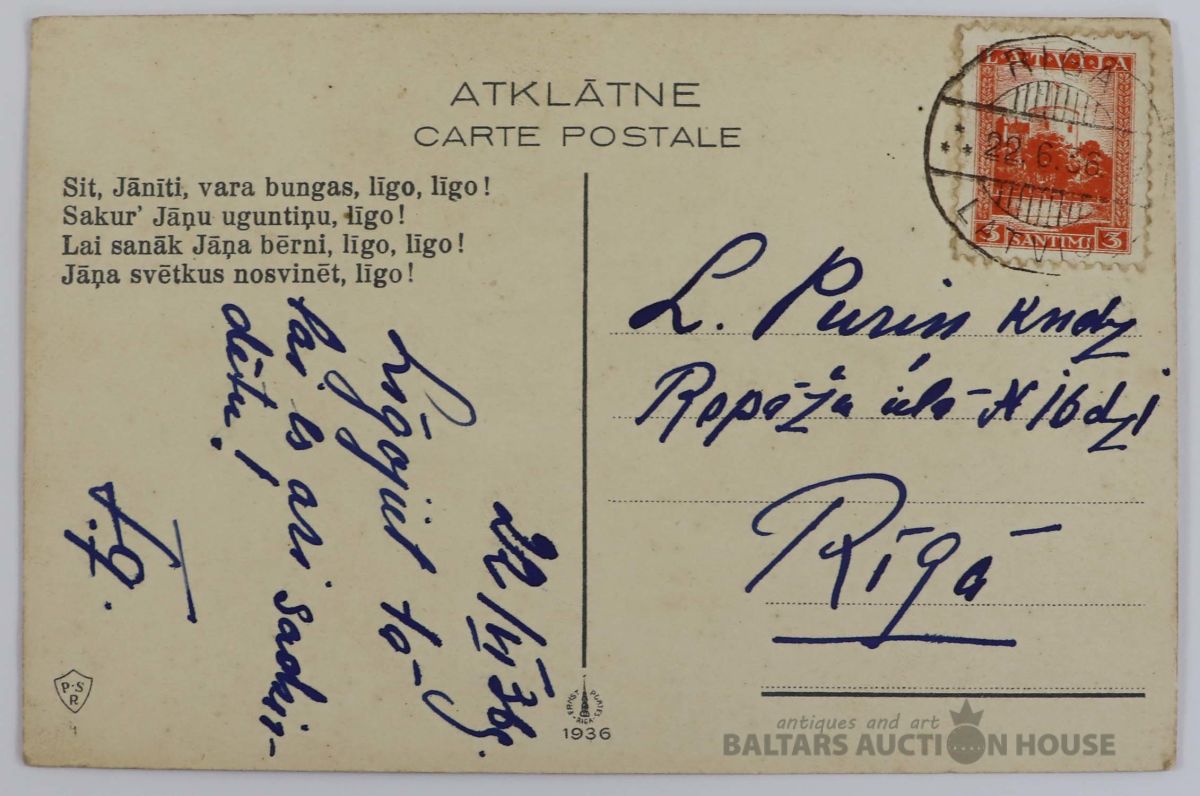 ATKLĀTNE
CARTE POSTALE
Sit, Jānīti, vara bungas, līgo, līgo!
Sakur' Jāņu uguntiņu, līgo!
Lai sanāk Jāņa bērni, līgo, līgo!
Jāņa svētkus nosvinēt, līgo!
LATVIJA
3 SANTIMI 3
RIGA
22.6.36
LATVIJA
L. Purin kndz
Ropāža ielā N 16 dz 1
Rīgā
22/VI 36g.
Līgojiet tā
lai ls arī sadzir-
dētu!
P.S
R
ERNST PLATES
RIGA
1936
antiques and art
BALTARS AUCTION HOUSE